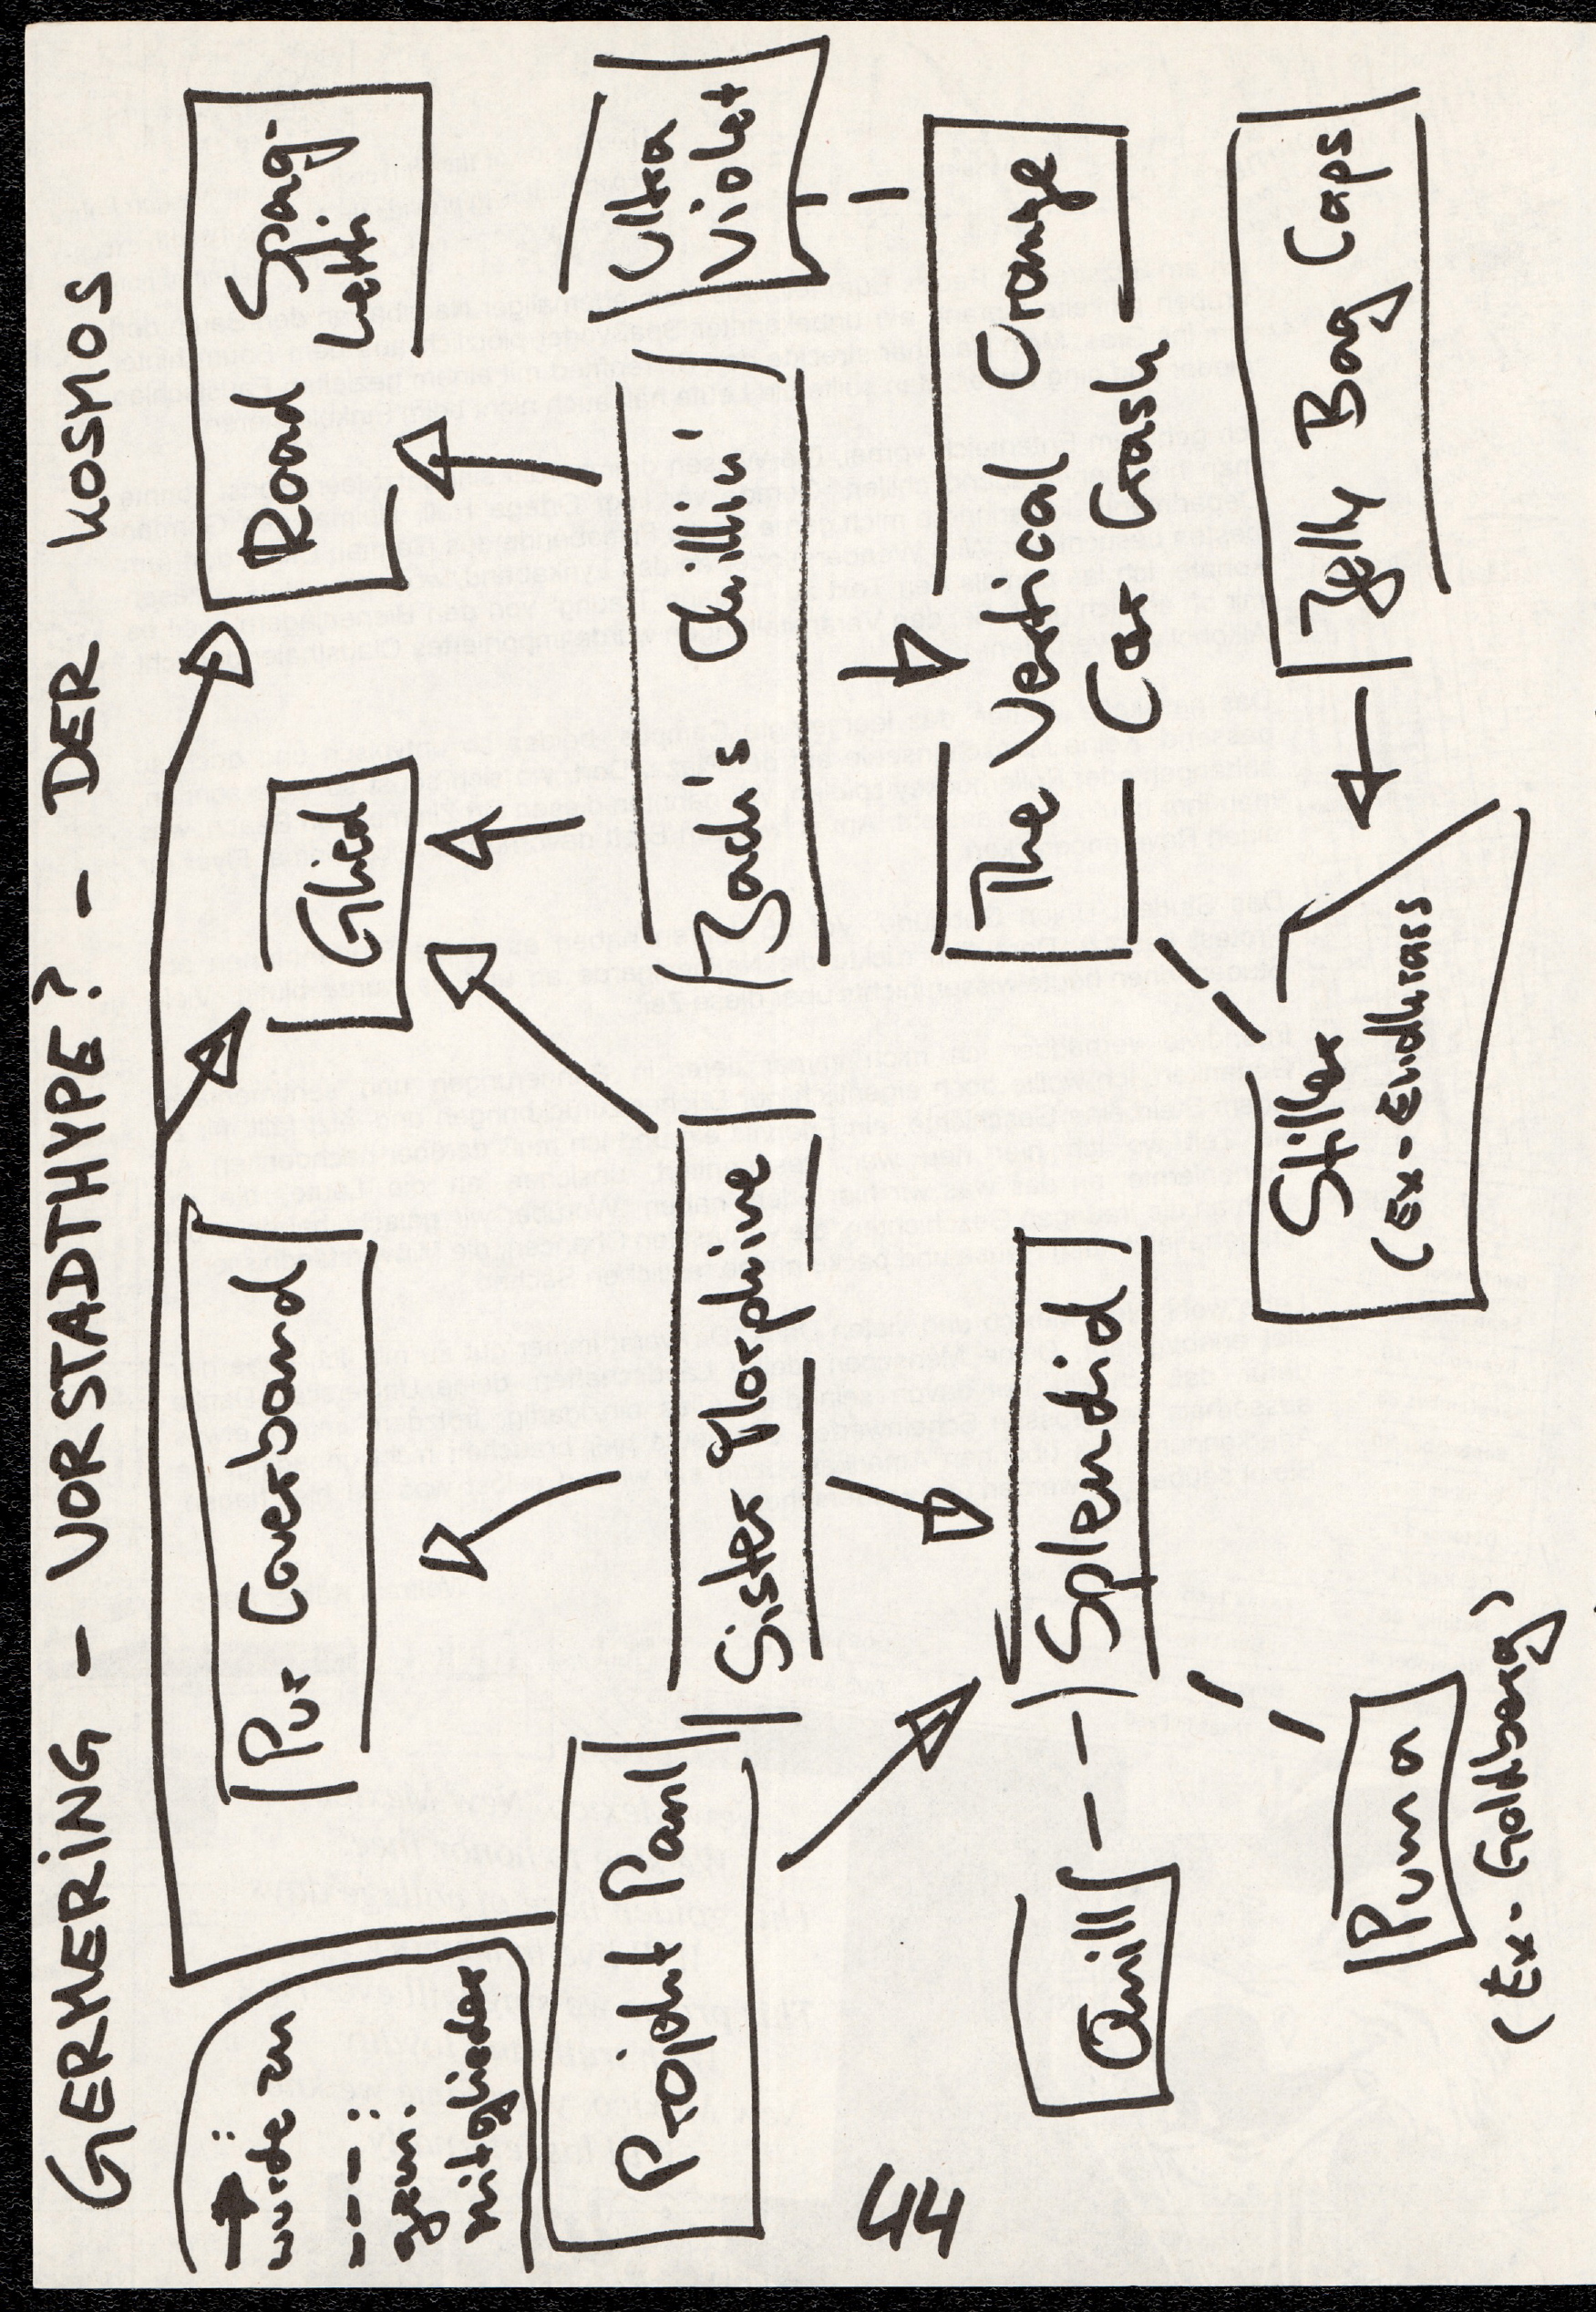 GERMERING - VORSTADTHYPE? - DER KOSMOS
→ :
wurde zu
--- :
gem.
Mitglieder
Projekt Paul
Pur Coverband
Glied
Road Spag-
hetti
Sister Morphine
Zadi's Chillin'
Ultra
Violet
Quill
Splendid
The Vertical Orange
Car Crash
Puma
(Ex-Goldberg)
Stiller
(Ex-Endhrass
Jelly Bag Caps
44